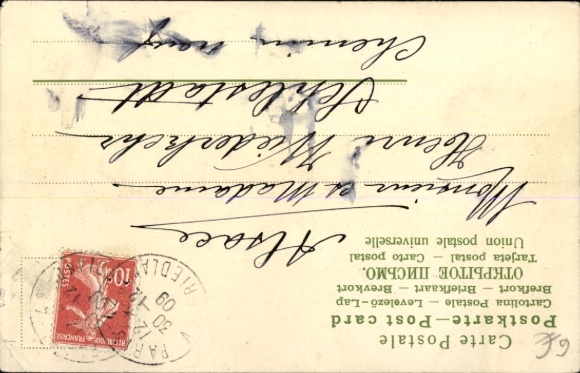 Carte Postale
Postkarte—Post card
Cartolina Postale - Levelező-Lap
Bretkort - Briefkaart - Brevkort
ОТКРЫТОЕ ПИСЬМО.
Tarjeta postal - Carto postal
Union postale universelle
Alsace
Monsieur et Madame
Henri Niederkehr
Schlestadt
Chemin neuf
10c
POSTES
REPUBLIQUE FRANÇAISE
PARIS
30
12
09